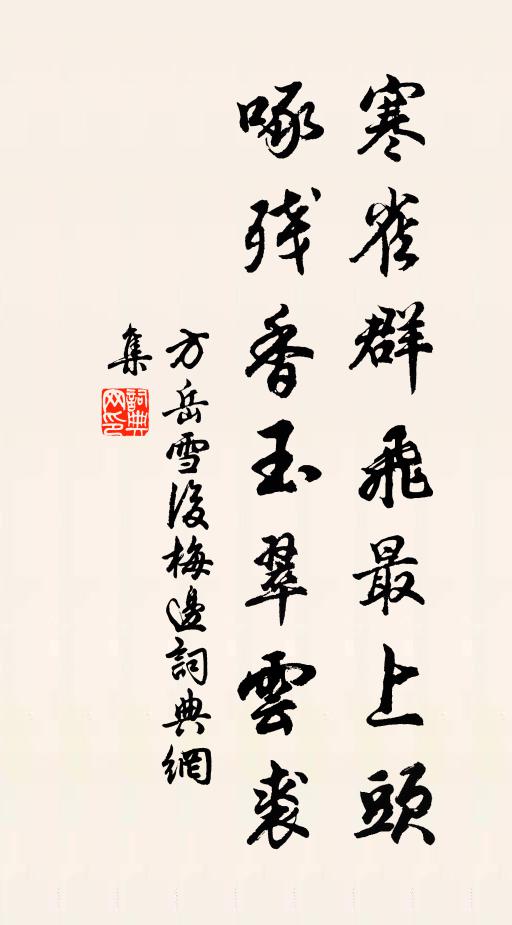 寒雀群飛最上頭
啄残香玉翠雲裘
方岳雪後梅邊詞典網
集
詞典
网印